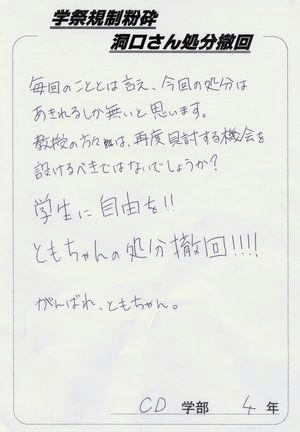 学祭規制粉砕
洞口さん処分撤回
毎回のこととは言え、今回の処分は
あきれるしか無いと思います。
教授の方々は、再度検討する機会を
設けるべきではないでしょうか?
学生に自由を!!
ともちゃんの処分撤回!!!!
がんばれ、ともちゃん。
CD 学部 4 年